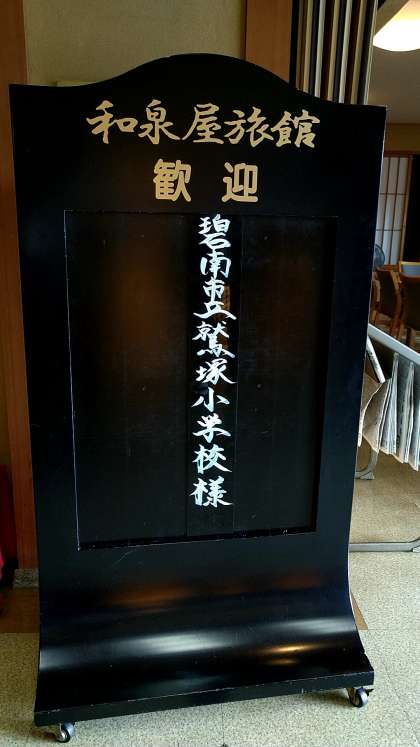 和泉屋旅館
歓迎
碧南市立鷲塚小学校様